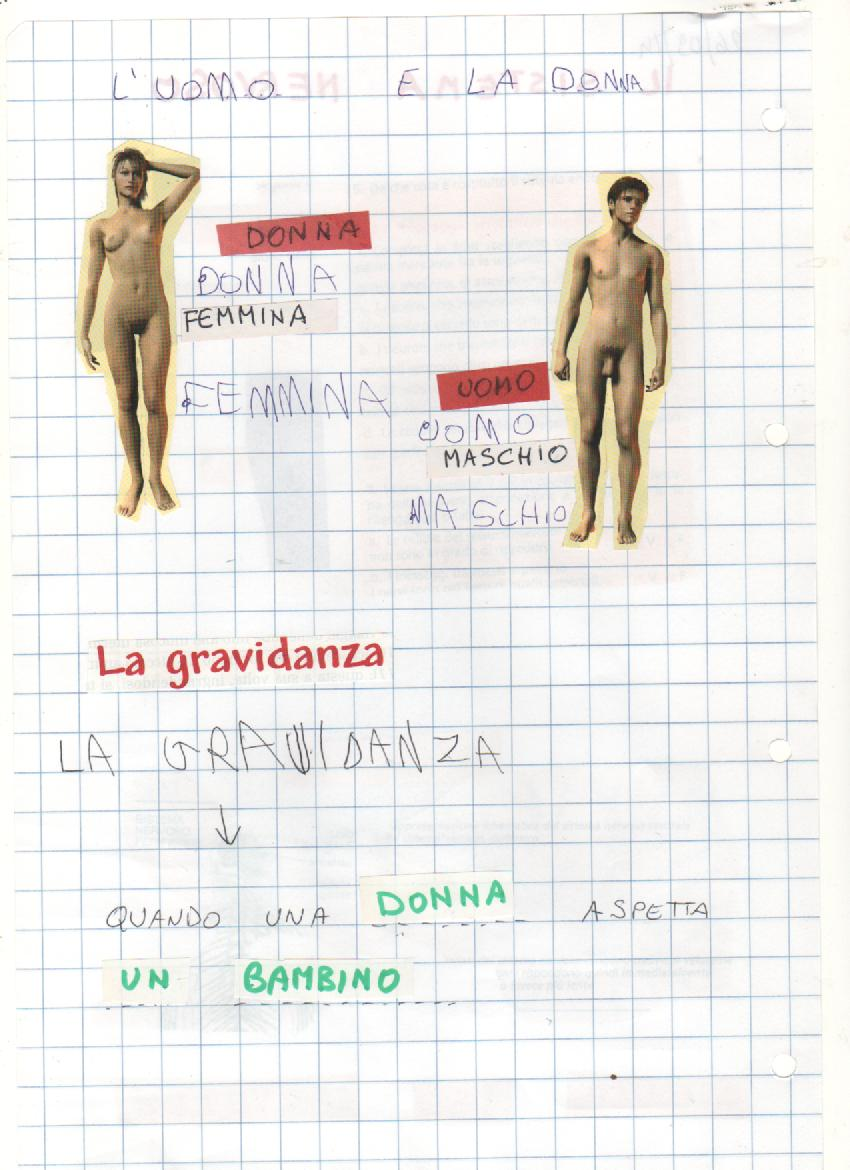 L'UOMO E LA DONNA
DONNA
DONNA
FEMMINA
FEMMINA
UOMO
UOMO
MASCHIO
MASCHIO
La gravidanza
LA GRAVIDANZA
QUANDO UNA DONNA ASPETTA
UN BAMBINO